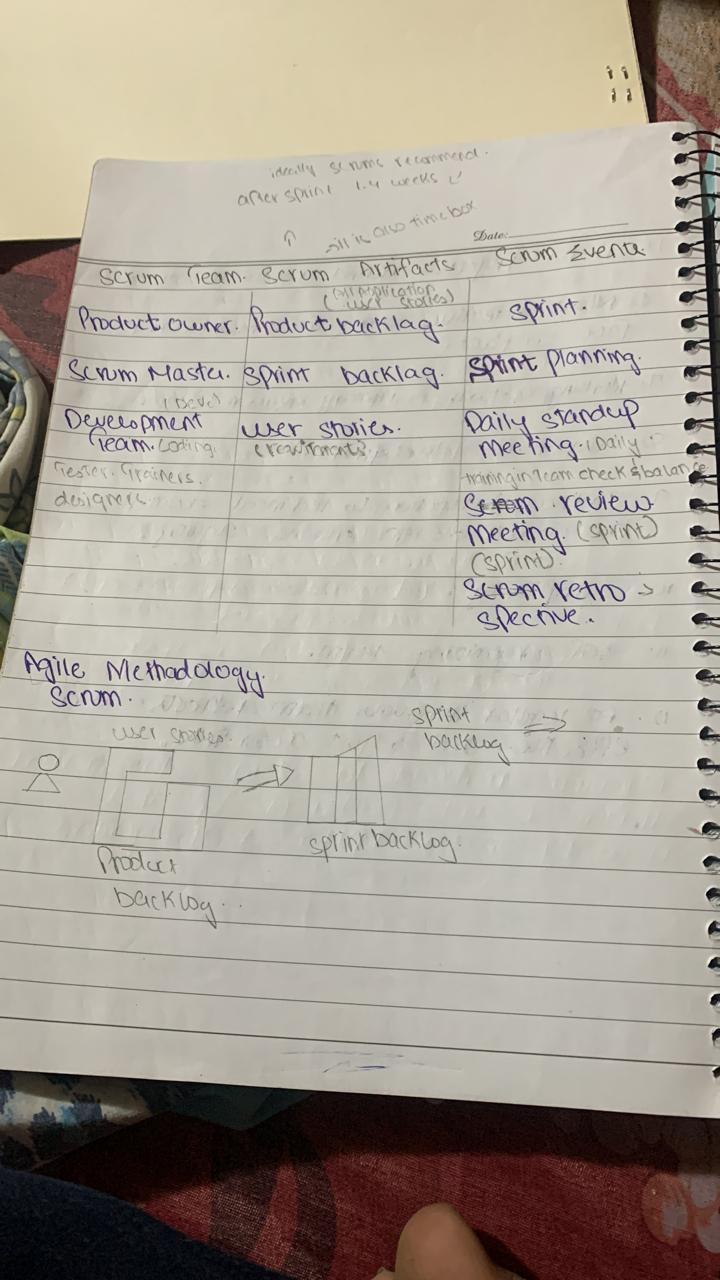 ideally scrums recommend.
after sprint 1-4 weeks
is also timebox
Date:
Scrum Team. Scrum Artifacts Scrum Events
(all Application
user stories)
Product owner. Product backlag. Sprint.
Scrum Master. Sprint backlag. Sprint planning.
(Deve)
Development user stories. Daily standup
Team. Coding. (requirments) Meeting. (Daily
Tester. Trainers. training in Team check & balance
designers. Scrum review
Meeting. (sprint)
(sprint).
Scrum retro
spective.
Agile Methodology.
Scrum.
user stories. sprint
backlog
sprint backlog.
Product
backlog..